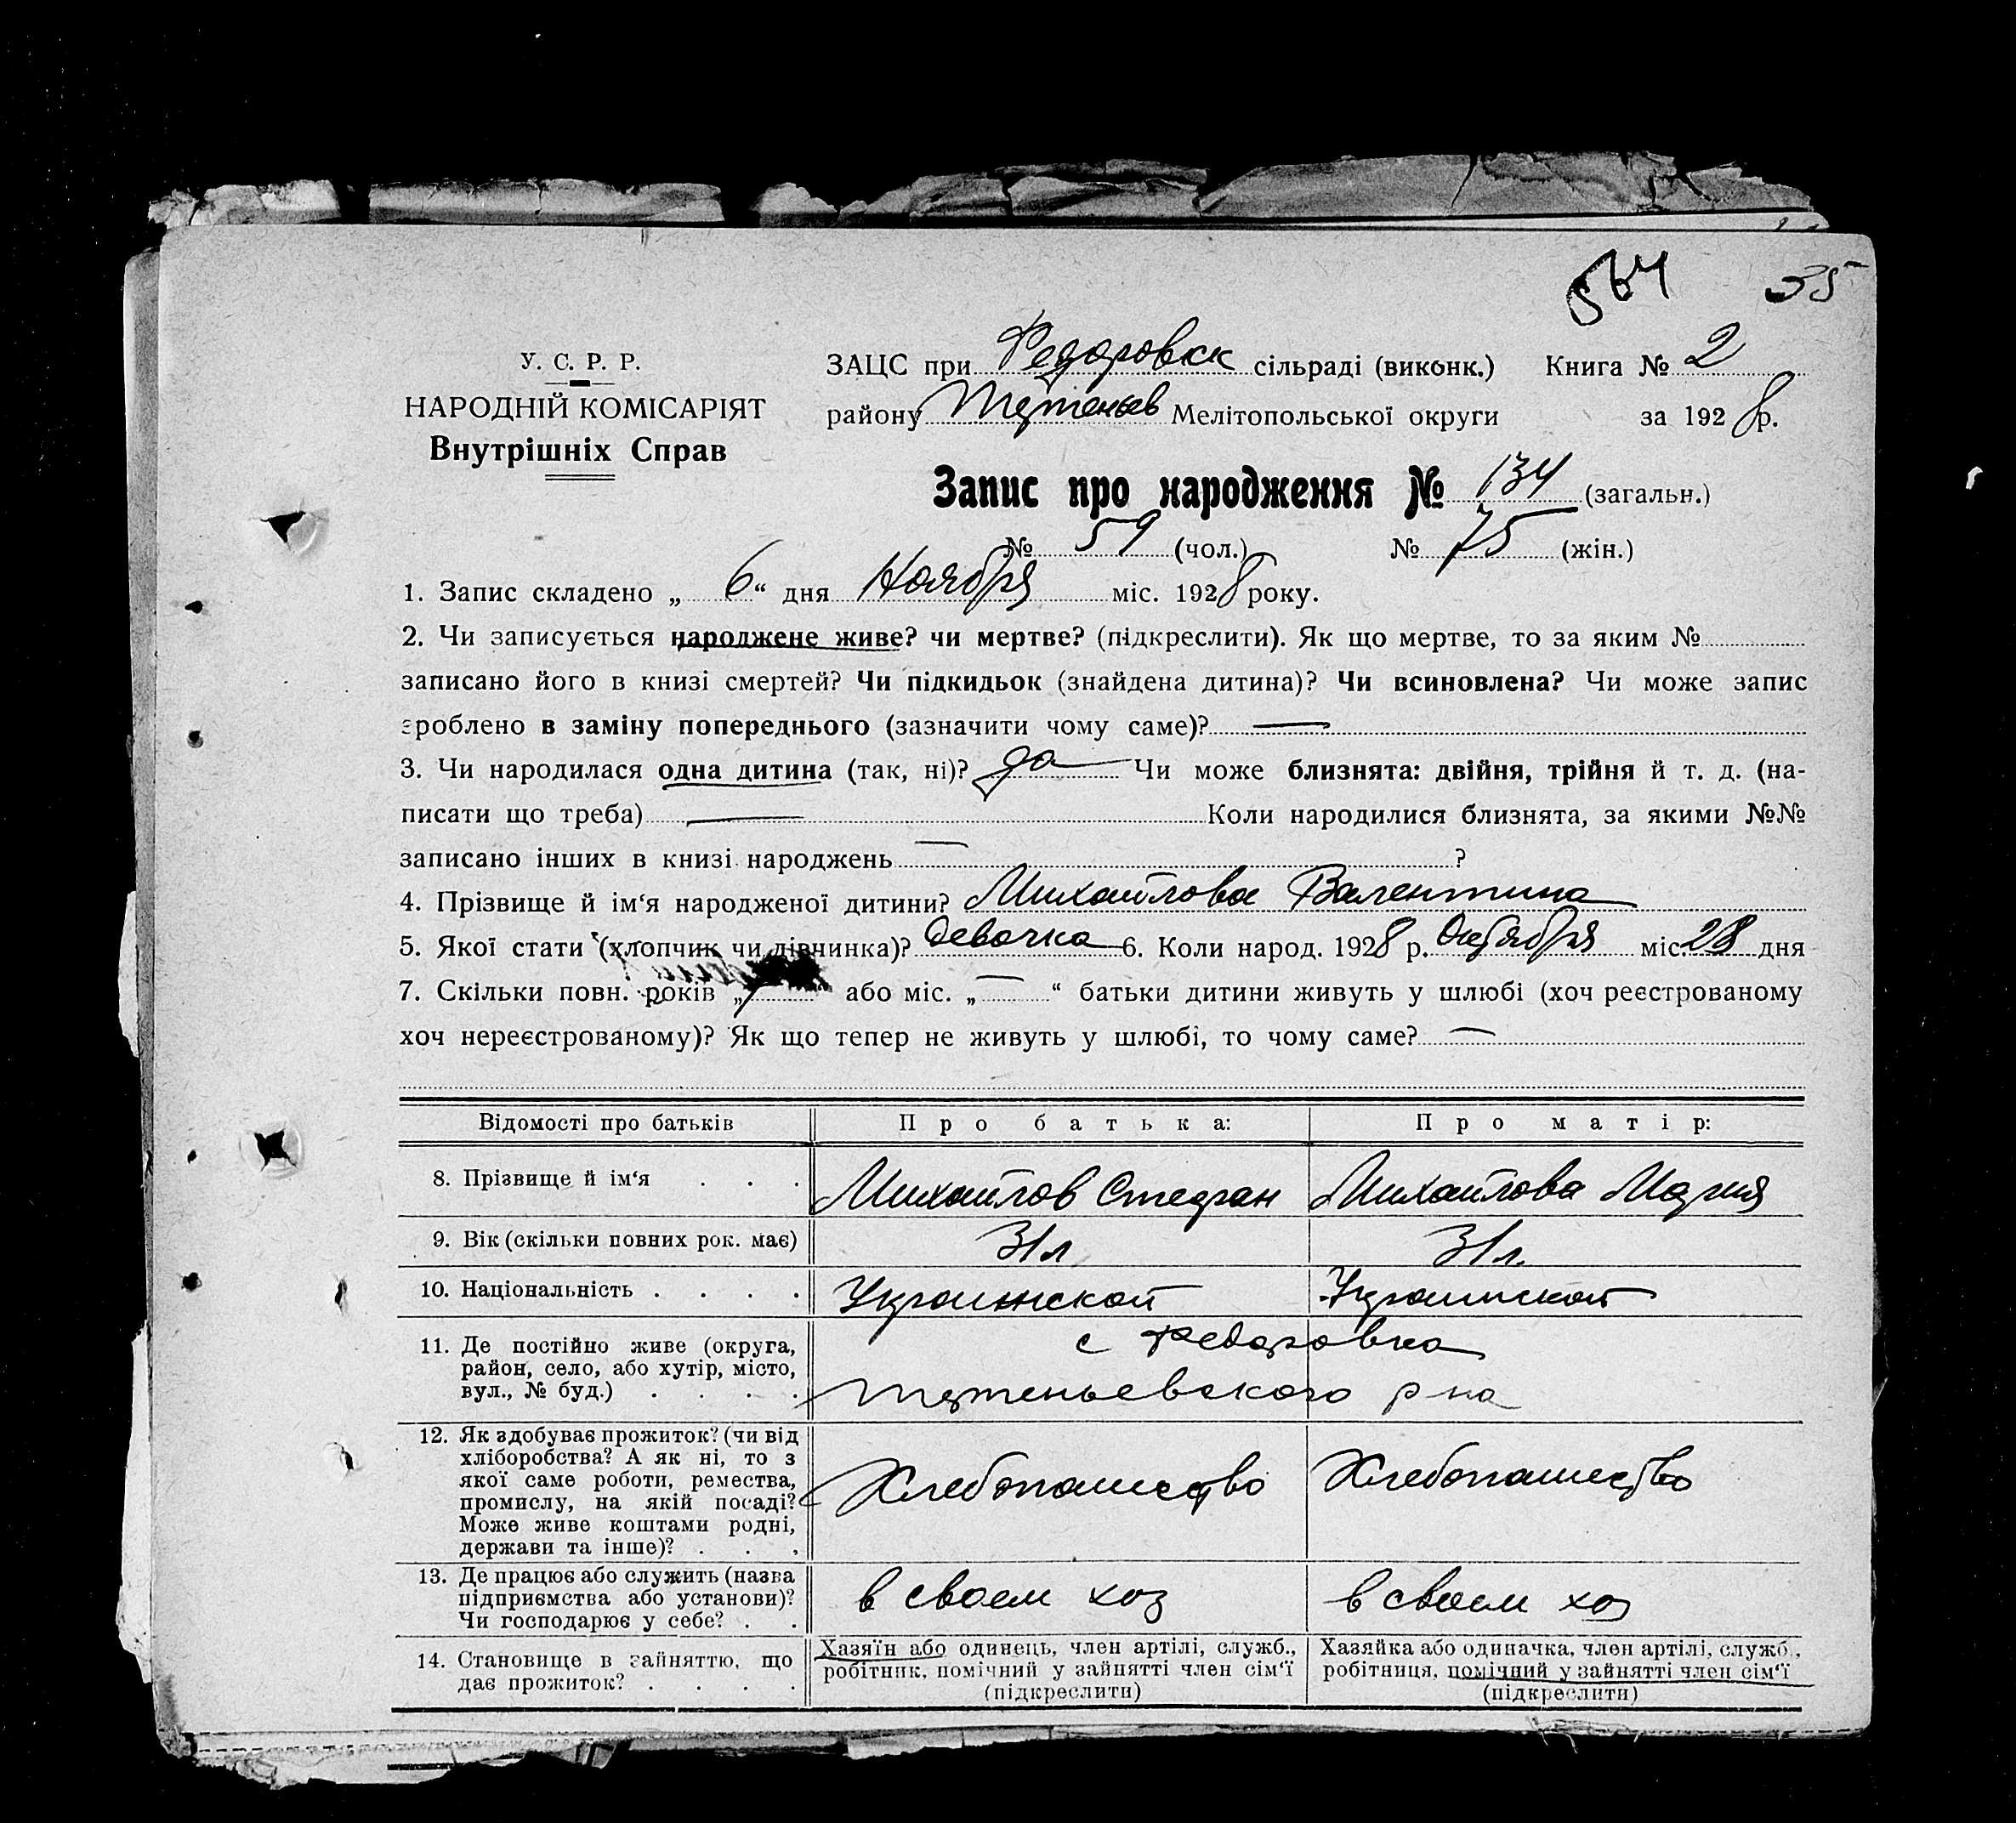 564 35
У. С. Р. Р.
НАРОДНІЙ КОМІСАРІЯТ
Внутрішніх Справ
ЗАЦС при Федоровск сільраді (виконк.) Книга № 2
району Мелітопольської округи за 1928 р.
Запис про народження № 134 (загальн.)
№ 59 (чол.) № 75 (жін.)
1. Запис складено „ 6 “ дня Ноября міс. 1928 року.
2. Чи записується народжене живе? чи мертве? (підкреслити). Як що мертве, то за яким №
записано його в книзі смертей? Чи підкидьок (знайдена дитина)? Чи всиновлена? Чи може запис
зроблено в заміну попереднього (зазначити чому саме)? —
3. Чи народилася одна дитина (так, ні)? да Чи може близнята: двійня, трійня й т. д. (на-
писати що треба) — Коли народилися близнята, за якими №№
записано інших в книзі народжень — ?
4. Прізвище й ім‘я народженої дитини? Михайлова Валентина
5. Якої стати (хлопчик чи дівчинка)? девочка 6. Коли народ. 1928 р. Октября міс. 28 дня
7. Скільки повн. років „ “ або міс. „ — “ батьки дитини живуть у шлюбі (хоч реєстрованому
хоч нереєстрованому)? Як що тепер не живуть у шлюбі, то чому саме? —
Відомості про батьків Про батька: Про матір:
8. Прізвище й ім‘я . . . Михайлов Стефан Михайлова Мария
9. Вік (скільки повних рок. має) 31 л 31 л.
10. Національність . . . . Украинской Украинской
11. Де постійно живе (округа,
район, село, або хутір, місто,
вул., № буд.) . . . .
с Федоровка
р-на
12. Як здобуває прожиток? (чи від
хліборобства? А як ні, то з
якої саме роботи, ремества,
промислу, на якій посаді?
Може живе коштами родні,
держави та інше)? . . .
Хлебопашество Хлебопашество
13. Де працює або служить (назва
підприємства або установи)?
Чи господарює у себе? . .
в своем хоз в своем хоз
14. Становище в зайняттю, що
дає прожиток? . . . .
Хазяїн або одинець, член артілі, служб.,
робітник, помічний у зайнятті член сім‘ї
(підкреслити)
Хазяйка або одиначка, член артілі, служб.,
робітниця, помічний у зайнятті член сім‘ї
(підкреслити)